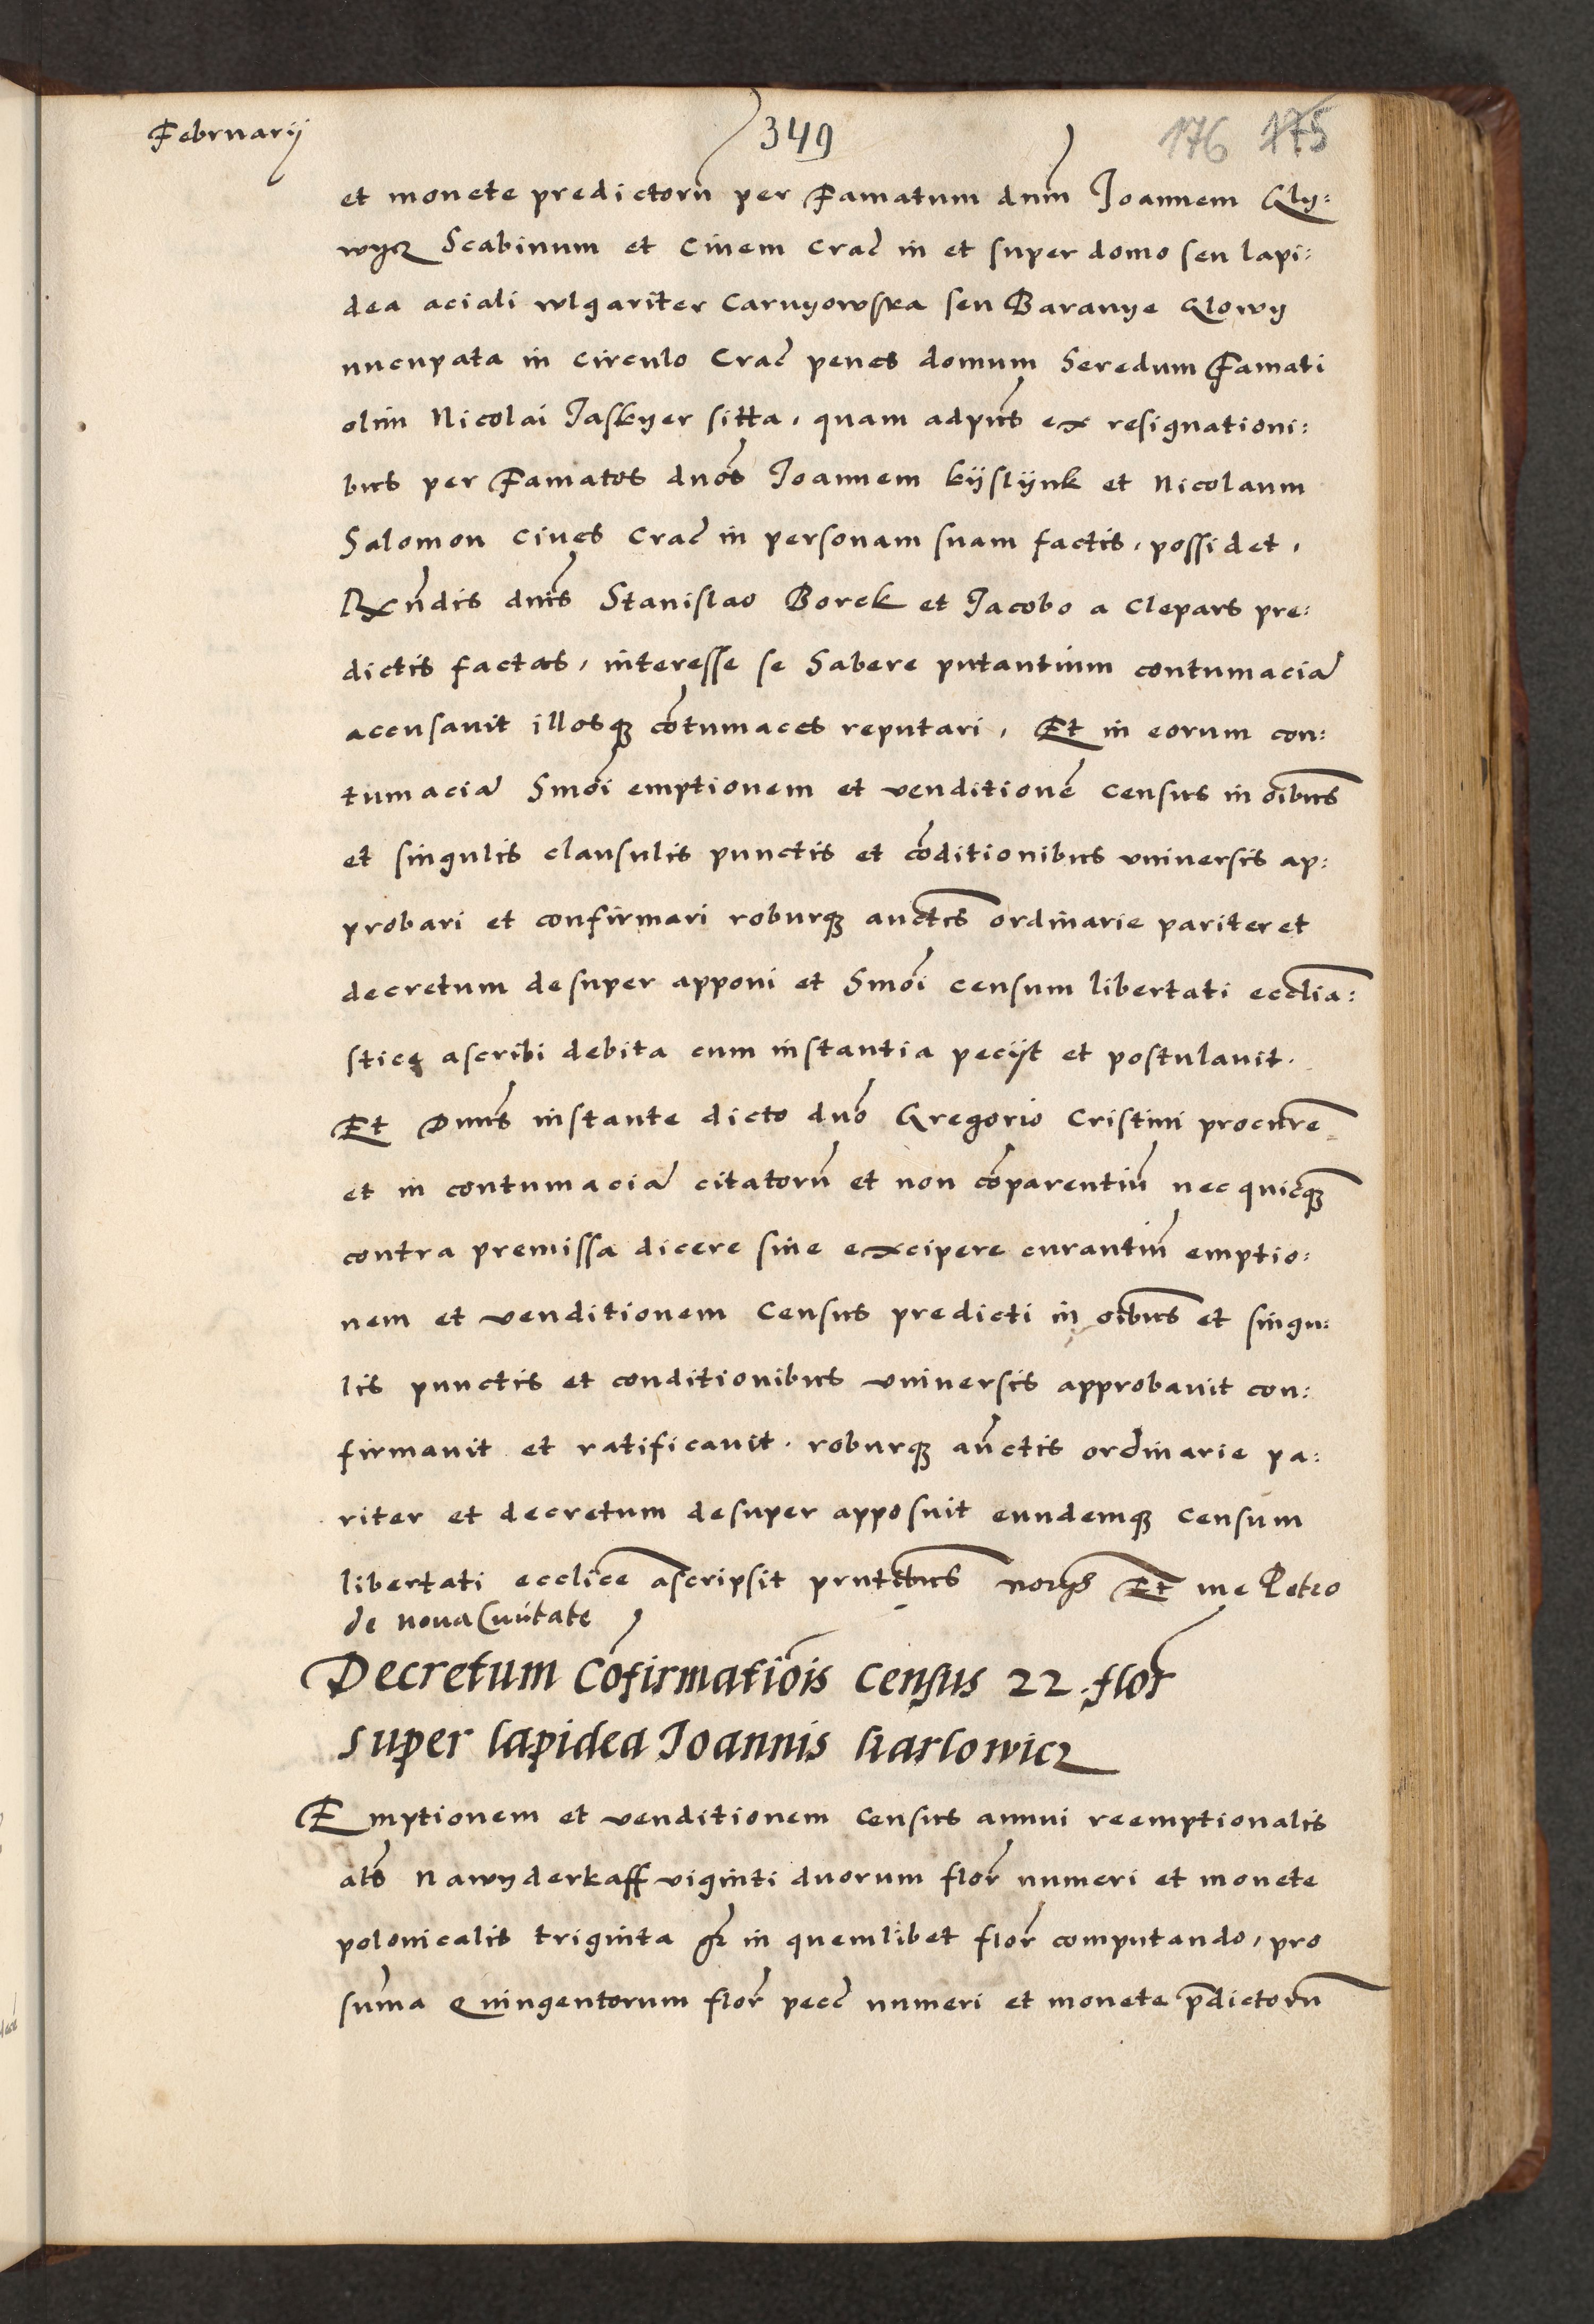 Februarij
349
176 175
et monete predictorũ per Famatum dnm̃ Joannem Gly:
wycz Scabinum et Ciuem Crac̃ in et super domo seu lapi:
dea aciali wlgariter Carnyowska seu Baranye Glowy
nucupata in circulo Crac̃ penes domum heredum Famati
olim Nicolai Jaskyer sitta, quam adpñs ex resignationi:
bus per Famatos dños Joannem kijslijnk et Nicolaum
Salomon Ciues Crac̃ in personam suam factis, possidet,
Rxñdis dnis̃ Stanislao Borek et Jacobo a Clepars pre:
dictis factas, interesse se habere putantium contumaciã
accusauit illosq3 cõtumaces reputari, Et in eorum con:
tumaciã hmõi emptionem et venditionẽ Census in oĩbus
et singulis clausulis punctis et cõditionibus vniuersis ap:
probari et confirmari roburq3 auctis̃ ordinarie pariter et
decretum desuper apponi et hmõi censum libertati ecclia:
sticę ascribi debita cum instantia pecijt et postulauit.
Et Dnns̃ instante dicto dnõ Gregorio Cristini procurẽ
et in contumaciã citatorũ et non cõparentiũ nec quicq3
contra premissa dicere siue excipere curantiũ emptio:
nem et venditionem Census predicti in oĩbus et singu:
lis punctis et conditionibus vniuersis approbauit con:
firmauit et ratificauit. roburq3 aũctis ordinarie pa:
riter et decretum desuper apposuit eundemq3 Censum
libertati ecclice ascripsit prntibus norijs Et me Petro
de Noua Ciuitate
Decretum Cõfirmatiõis Census 22. flor̃
super lapidea Joannis karlowicz
Emptionem et venditionem Census annui reemptionalis
als̃ Nawyderkaff viginti duorum flor̃ numeri et monete
polonicalis triginta gr̃ in quemlibet flor̃ computando, pro
sum̃a Quingentorum flor̃ pecc̃ numeri et monete p̃dictorũ